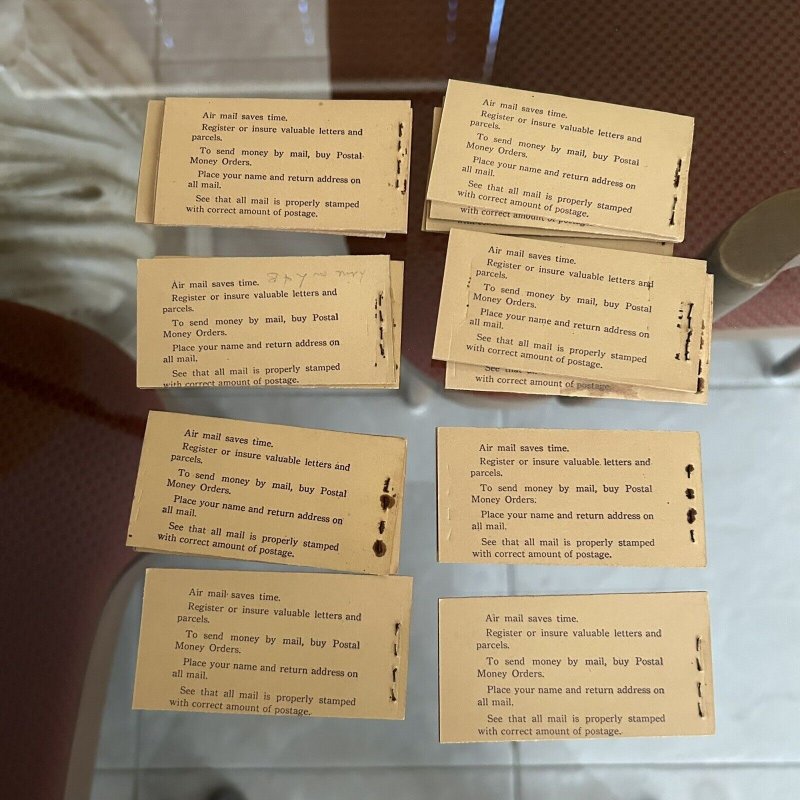 Air mail saves time.
Register or insure valuable letters and
parcels.
To send money by mail, buy Postal
Money Orders.
Place your name and return address on
all mail.
See that all mail is properly stamped
with correct amount of postage.
Air mail saves time.
Register or insure valuable letters and
parcels.
To send money by mail, buy Postal
Money Orders.
Place your name and return address on
all mail.
See that all mail is properly stamped
with correct amount of postage.
with correct amount of postage.
Air mail saves time.
Register or insure valuable letters and
parcels.
To send money by mail, buy Postal
Money Orders.
Place your name and return address on
all mail.
See that all mail is properly stamped
with correct amount of postage.
Air mail saves time.
Register or insure valuable letters and
parcels.
To send money by mail, buy Postal
Money Orders.
Place your name and return address on
all mail.
See that all mail is properly stamped
with correct amount of postage.
See that all
with correct amount of postage.
Air mail saves time.
Register or insure valuable letters and
parcels.
To send money by mail, buy Postal
Money Orders.
Place your name and return address on
all mail.
See that all mail is properly stamped
with correct amount of postage.
Air mail saves time.
Register or insure valuable letters and
parcels.
To send money by mail, buy Postal
Money Orders.
Place your name and return address on
all mail.
See that all mail is properly stamped
with correct amount of postage.
Air mail saves time.
Register or insure valuable letters and
parcels.
To send money by mail, buy Postal
Money Orders.
Place your name and return address on
all mail.
See that all mail is properly stamped
with correct amount of postage.
Air mail saves time.
Register or insure valuable letters and
parcels.
To send money by mail, buy Postal
Money Orders.
Place your name and return address on
all mail.
See that all mail is properly stamped
with correct amount of postage.